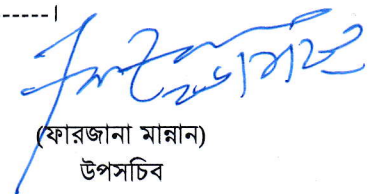 -----।
(ফারজানা মান্নান)
উপসচিব